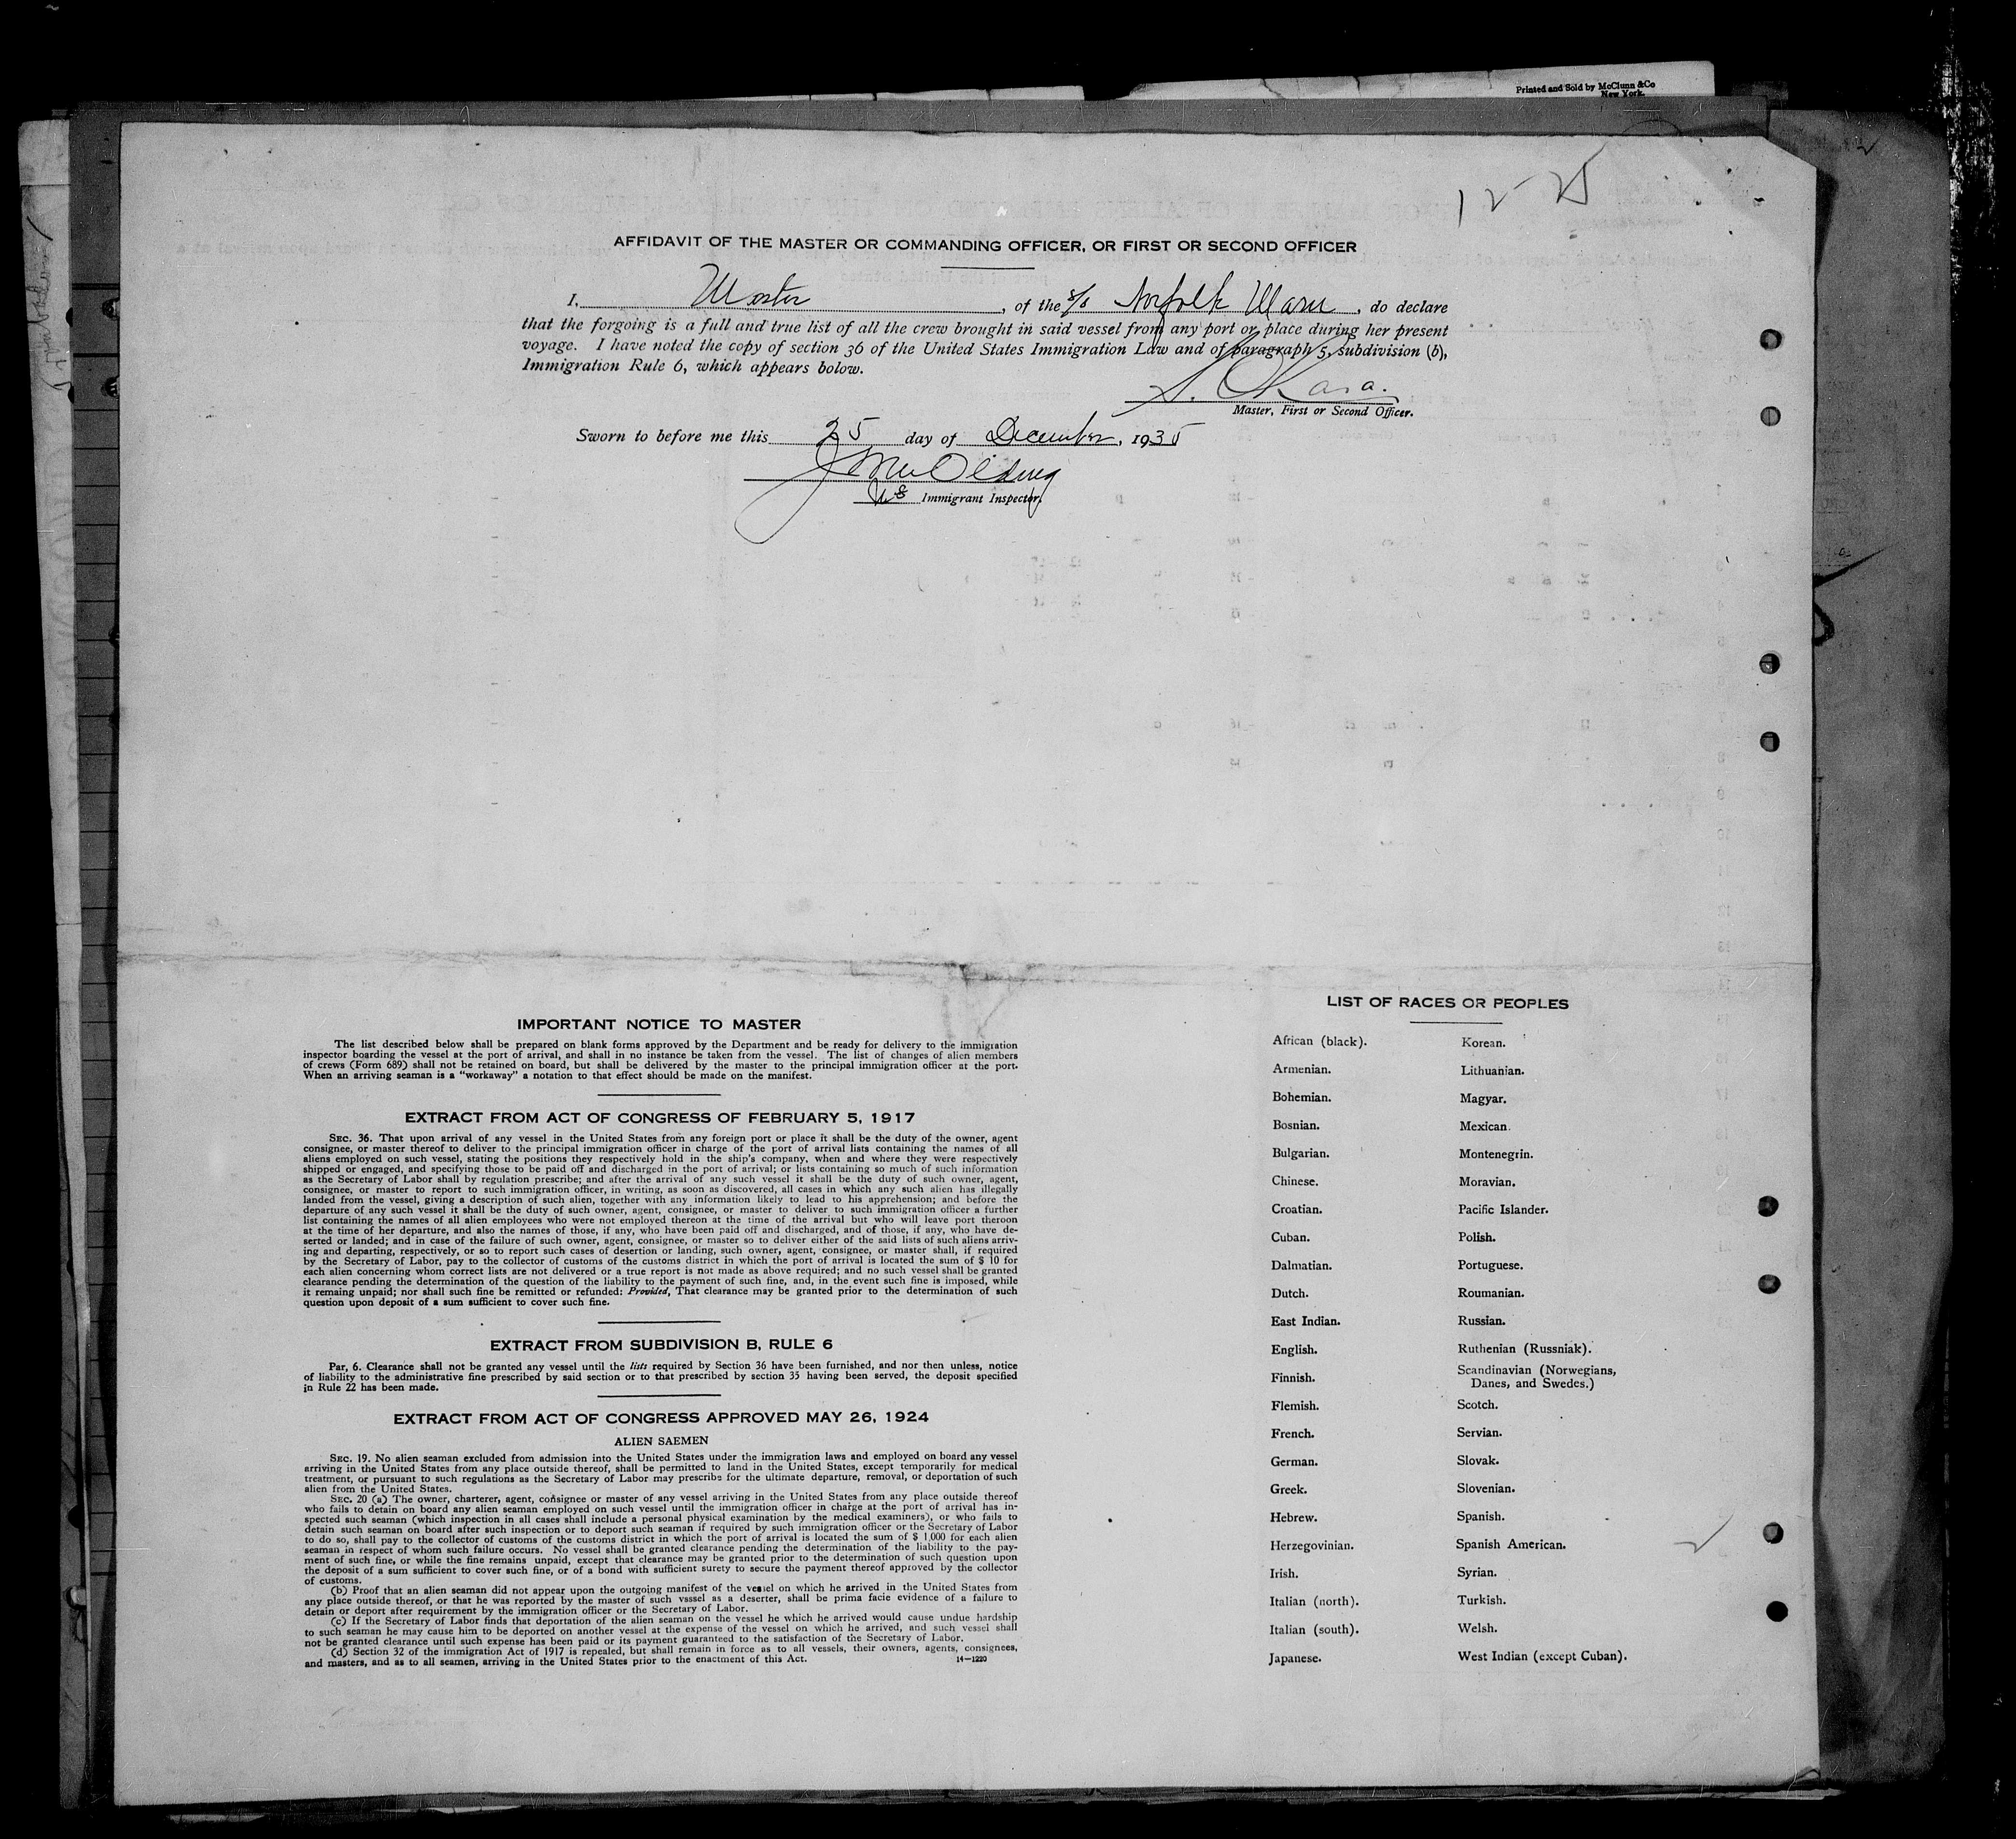 Printed and Sold by McClunn & Co
New York.
12 25
AFFIDAVIT OF THE MASTER OR COMMANDING OFFICER, OR FIRST OR SECOND OFFICER
I, Master, of the S/S Norfolk Maru, do declare
that the forgoing is a full and true list of all the crew brought in said vessel from any port or place during her present
voyage. I have noted the copy of section 36 of the United States Immigration Law and of paragraph 5, subdivision (b),
Immigration Rule 6, which appears bolow.
S. Okasa.
Master, First or Second Officer.
Sworn to before me this 25 day of December, 1935
US Immigrant Inspector.
IMPORTANT NOTICE TO MASTER
The list described below shall be prepared on blank forms approved by the Department and be ready for delivery to the immigration
inspector boarding the vessel at the port of arrival, and shall in no instance be taken from the vessel. The list of changes of alien members
of crews (Form 689) shall not be retained on board, but shall be delivered by the master to the principal immigration officer at the port.
When an arriving seaman is a "workaway" a notation to that effect should be made on the manifest.
EXTRACT FROM ACT OF CONGRESS OF FEBRUARY 5, 1917
SEC. 36. That upon arrival of any vessel in the United States from any foreign port or place it shall be the duty of the owner, agent
consignee, or master thereof to deliver to the principal immigration officer in charge of the port of arrival lists containing the names of all
aliens employed on such vessel, stating the positions they respectively hold in the ship's company, when and where they were respectively
shipped or engaged, and specifying those to be paid off and discharged in the port of arrival; or lists containing so much of such information
as the Secretary of Labor shall by regulation prescribe; and after the arrival of any such vessel it shall be the duty of such owner, agent,
consignee, or master to report to such immigration officer, in writing, as soon as discovered, all cases in which any such alien has illegally
landed from the vessel, giving a description of such alien, together with any information likely to lead to his apprehension; and before the
departure of any such vessel it shall be the duty of such owner, agent, consignee, or master to deliver to such immigration officer a further
list containing the names of all alien employees who were not employed thereon at the time of the arrival but who will leave port theroon
at the time of her departure, and also the names of those, if any, who have been paid off and discharged, and of those, if any, who have de-
serted or landed; and in case of the failure of such owner, agent, consignee, or master so to deliver either of the said lists of such aliens arriv-
ing and departing, respectively, or so to report such cases of desertion or landing, such owner, agent, consignee, or master shall, if required
by the Secretary of Labor, pay to the collector of customs of the customs district in which the port of arrival is located the sum of $ 10 for
each alien concerning whom correct lists are not delivered or a true report is not made as above required; and no such vessel shall be granted
clearance pending the determination of the question of the liability to the payment of such fine, and, in the event such fine is imposed, while
it remaing unpaid; nor shall such fine be remitted or refunded: Provided, That clearance may be granted prior to the determination of such
question upon deposit of a sum sufficient to cover such fine.
EXTRACT FROM SUBDIVISION B, RULE 6
Par, 6. Clearance shall not be granted any vessel until the lists required by Section 36 have been furnished, and nor then unless, notice
of liability to the administrative fine prescribed by said section or to that prescribed by section 35 having been served, the deposit specified
in Rule 22 has been made.
EXTRACT FROM ACT OF CONGRESS APPROVED MAY 26, 1924
ALIEN SAEMEN
SEC. 19. No alien seaman excluded from admission into the United States under the immigration laws and employed on board any vessel
arriving in the United States from any place outside thereof, shall be permitted to land in the United States, except temporarily for medical
treatment, or pursuant to such regulations as the Secretary of Labor may prescribe for the ultimate departure, removal, or deportation of such
alien from the United States.
SEC. 20 (a) The owner, charterer, agent, consignee or master of any vessel arriving in the United States from any place outside thereof
who fails to detain on board any alien seaman employed on such vessel until the immigration officer in charge at the port of arrival has in-
spected such seaman (which inspection in all cases shall include a personal physical examination by the medical examiners), or who fails to
detain such seaman on board after such inspection or to deport such seaman if required by such immigration officer or the Secretary of Labor
to do so, shall pay to the collector of customs of the customs district in which the port of arrival is located the sum of $ 1,000 for each alien
seaman in respect of whom such failure occurs. No vessel shall be granted clearance pending the determination of the liability to the pay-
ment of such fine, or while the fine remains unpaid, except that clearance may be granted prior to the determination of such question upon
the deposit of a sum sufficient to cover such fine, or of a bond with sufficient surety to secure the payment thereof approved by the collector
of customs.
(b) Proof that an alien seaman did not appear upon the outgoing manifest of the vessel on which he arrived in the United States from
any place outside thereof, or that he was reported by the master of such vsssel as a deserter, shall be prima facie evidence of a failure to
detain or deport after requirement by the immigration officer or the Secretary of Labor.
(c) If the Secretary of Labor finds that deportation of the alien seaman on the vessel he which he arrived would cause undue hardship
to such seaman he may cause him to be deported on another vessel at the expense of the vessel on which he arrived, and such vessel shall
not be granted clearance until such expense has been paid or its payment guaranteed to the satisfaction of the Secretary of Labor.
(d) Section 32 of the immigration Act of 1917 is repealed, but shall remain in force as to all vessels, their owners, agents, consignees,
and masters, and as to all seamen, arriving in the United States prior to the enactment of this Act. 14—1220
LIST OF RACES OR PEOPLES
African (black). Korean.
Armenian. Lithuanian.
Bohemian. Magyar.
Bosnian. Mexican.
Bulgarian. Montenegrin.
Chinese. Moravian.
Croatian. Pacific Islander.
Cuban. Polish.
Dalmatian. Portuguese.
Dutch. Roumanian.
East Indian. Russian.
English. Ruthenian (Russniak).
Finnish. Scandinavian (Norwegians,
Danes, and Swedes.)
Flemish. Scotch.
French. Servian.
German. Slovak.
Greek. Slovenian.
Hebrew. Spanish.
Herzegovinian. Spanish American.
Irish. Syrian.
Italian (north). Turkish.
Italian (south). Welsh.
Japanese. West Indian (except Cuban).